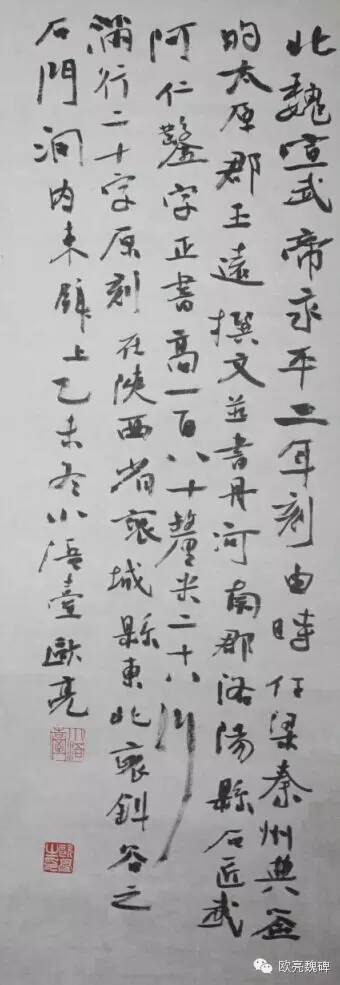 北魏宣武帝永平二年刻由時任梁秦州典簽
的太原郡王遠撰文並書丹河南郡洛陽縣石匠武
阿仁鑿字正書高一百八十釐米二十八行
滿行二十字原刻在陝西省褒城縣東北褒斜谷之
石門洞内東壁上乙未冬小浯臺歐亮
欧亮魏碑